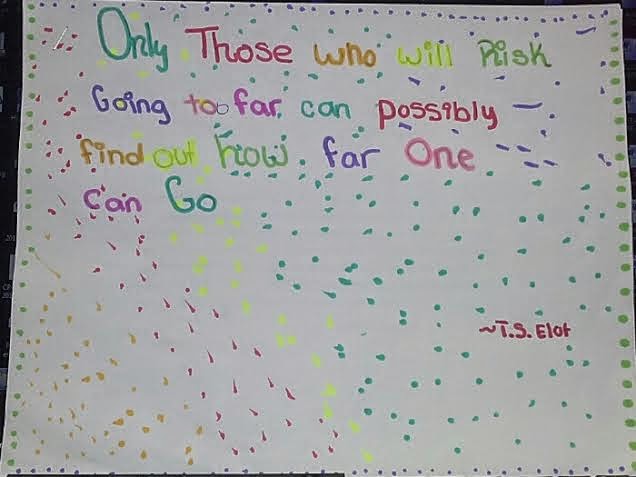 Only Those who will Risk
Going too far can possibly
find out how far One
Can Go
~T.S. Eliot